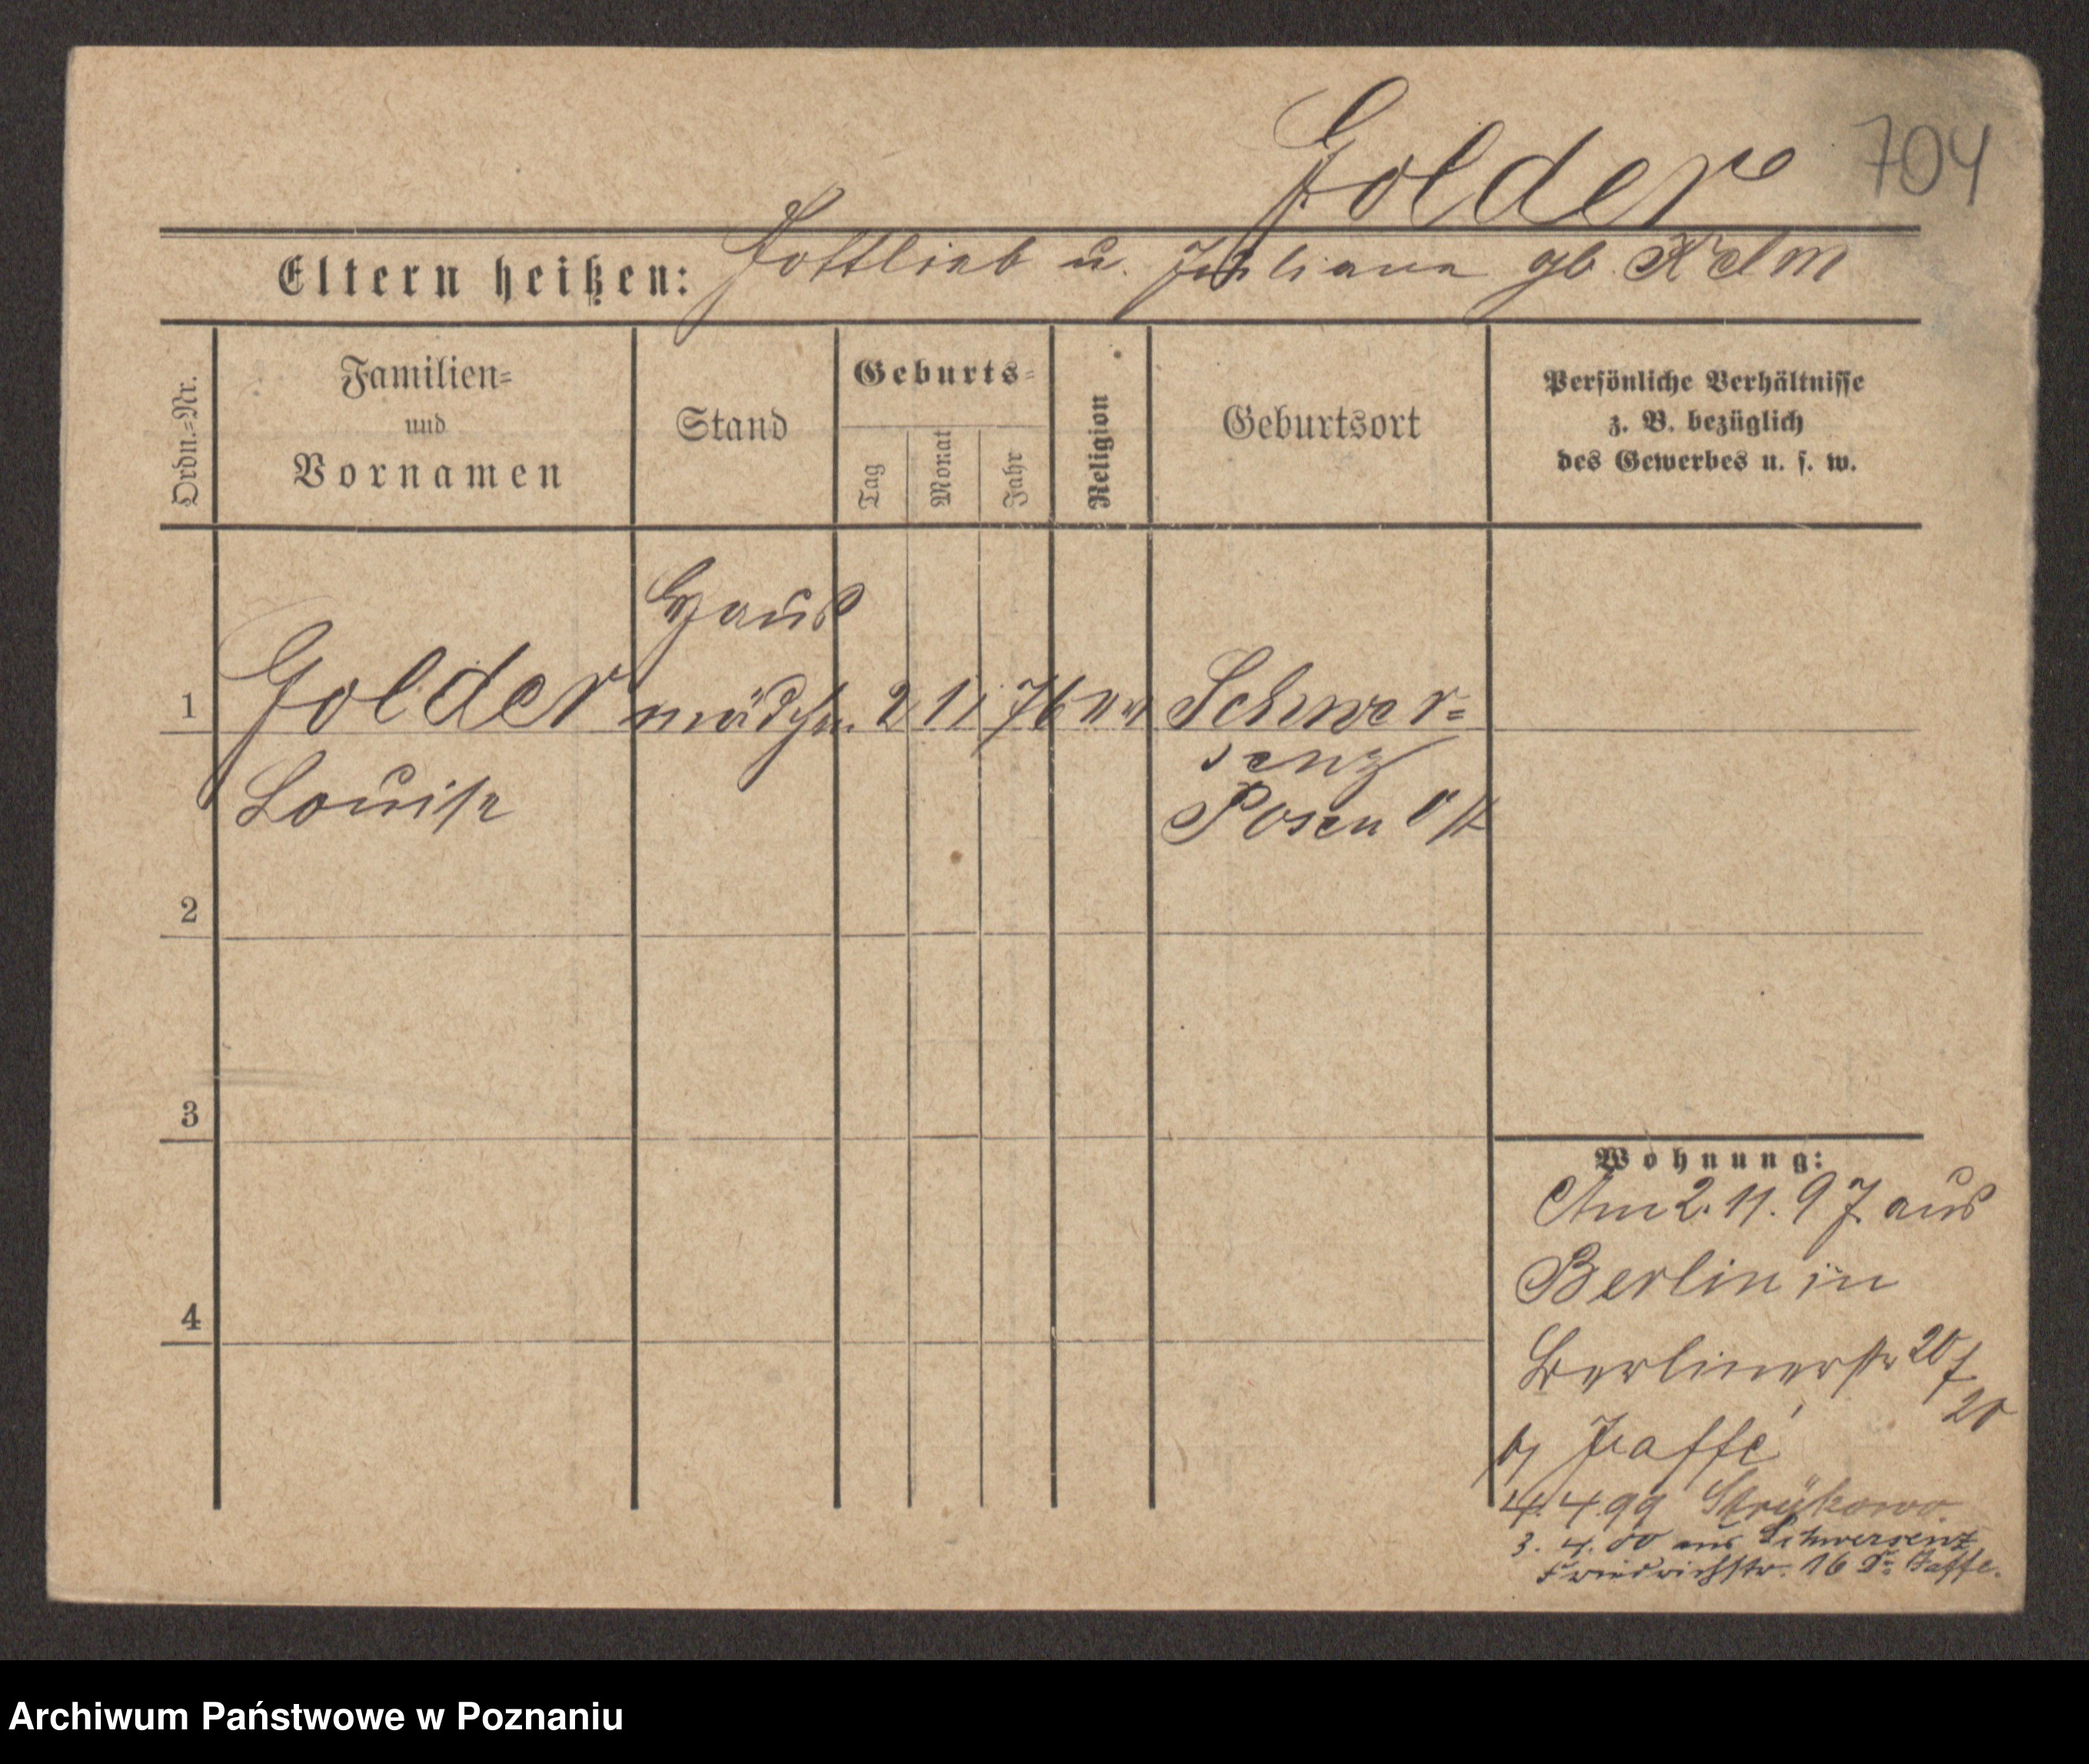 Golder 704
Eltern heißen: Gottlieb u. Juliana gb. Kelm
Ordn.=Nr.
Familien=
und
Vornamen
Stand
Geburts=
Tag
Monat
Jahr
Religion
Geburtsort
Persönliche Verhältnisse
z. B. bezüglich
des Gewerbes u. s. w.
Haus
1 Golder mädchen 2 11 76 ev Schwer=
senz
Louise
Posen Ost
2
3
4
Wohnung:
Am 2. 11. 97 aus
Berlin in
Berlinerstr 20
20
b/ Jaffé
4. 4. 99 Strykowo.
3. 4. 00 aus Schwersenz
Friedrichstr. 16 Jaffe.
Archiwum Państwowe w Poznaniu